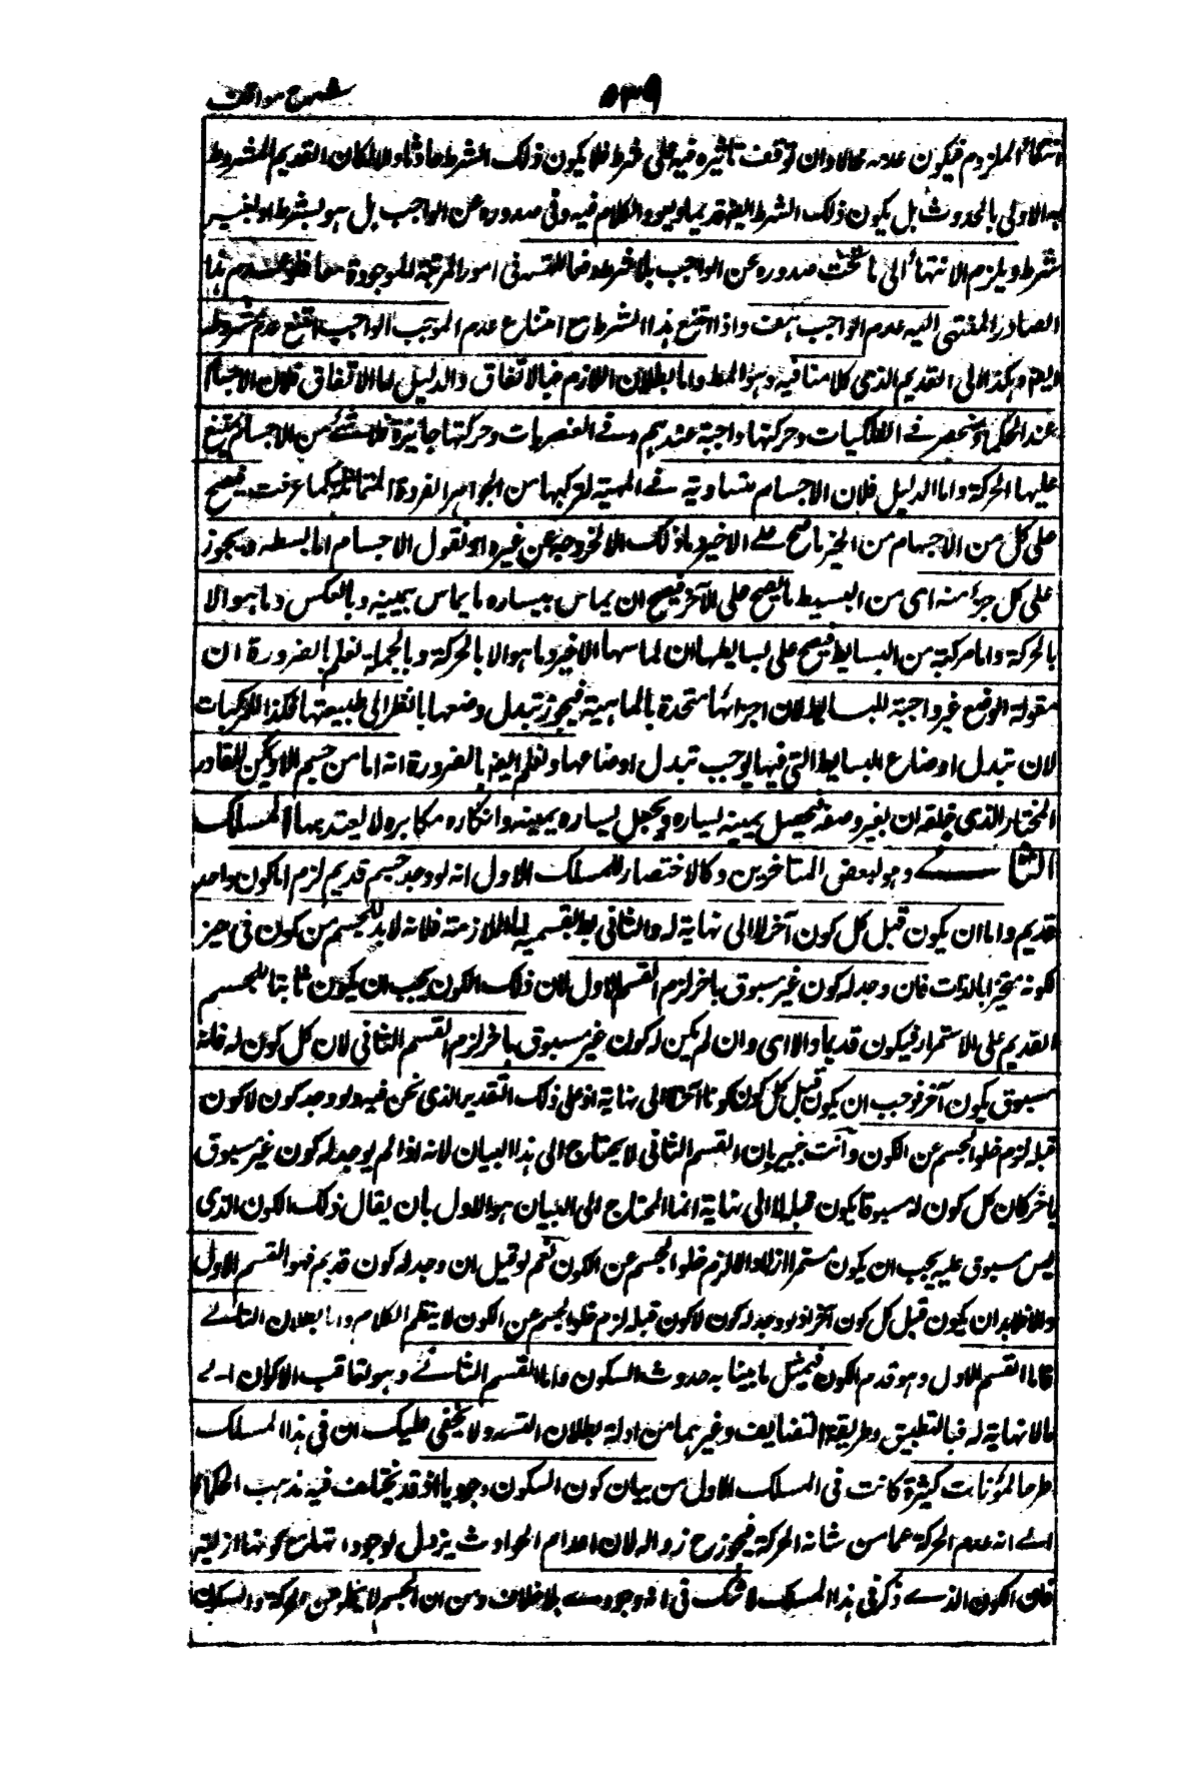 شرح مواقف
٥٣٩
انتفاء الملزوم فيكون عدمه محالا وان توقف تاثيره فيه على شرط فلا يكون ذلك الشرط حادثا والا لكان القديم المشروط
به اولى بالحدوث بل يكون ذلك الشرط ايضا قديما ويعود الكلام فيه وفى صدوره عن الواجب بل هو بشرط او بغير
شرط ويلزم الانتهاء الى ما يجب صدوره عن الواجب بلا شرط دفعا للتسه فى امور المرتبة الموجودة معا فلو عدم هذا
الصادر المنتهى اليه عدم الواجب هف واذا امتنع هذا الشرط مع امتناع عدم الموجب الواجب امتنع عدم مشروطه
ايضا وهكذا الى القديم الذى كلامنا فيه وهو المط واما بطلان اللازم فبالاتفاق والدليل اما الاتفاق فلان الاجسام
عند الحكماء منحصر فے الفلكيات وحركتها واجبة عندهم وفے العنصريات وحركتها جايزة فلا شئ من الاجسام يمتنع
عليها الحركة واما الدليل فلان الاجسام متساوية فے المهية لتركبها من الجواهر الفردة المتماثلة كما عرفت فيصح
على كل من الاجسام من الحيز ما صح على الاخر وما ذلك الا لخروجه عن غيره او نقول الاجسام اما بسيطه ويجوز
على كل جزء منه اى من البسيط ما يصح على الآخر فيصح ان يماس بيساره ما يماس بيمينه وبالعكس وما هو الا
بالحركة واما مركبة من البسايط فيصح على بسايطها ان لماسها الاخير وما هو الا بالحركة وبالجملة نعلم بالضرورة ان
مقولة الوضع غير واجبة للبسايط لان اجزائها متحدة بالماهية فيجوز تبدل وضعها بالنظر الى طبيعتها فكذا المركبات
لان تبدل اوضاع البسايط التى فيها يوجب تبدل اوضاعها ونعلم ايضا بالضرورة انه اما من جسم الا ويمكن للقادر
المختار الذى خلقه ان يغير وصفه فيحصل يمينه يساره ويجعل يساره يمينه وانكاره مكابره لا يعتد بها المسلك
الثانے وهو لبعض المتاخرين وكالاختصار للمسلك الاول انه لو وجد جسم قديم لزم اما كون واحد
قديم واما ان يكون قبل كل كون آخر لا الى نهاية له والثانى بط بقسميه اما الملازمته فلانه لابد للجسم من كون فى حيز
لكونه متحيزا بالذات فان وجد له كون غير مسبوق باخر لزم القسم الاول لان ذلك الكون يجب ان يكون ثابتا للجسم
القديم على الاستمرار فيكون قديما والا اى وان لم يكن له كون غير مسبوق باخر لزم القسم الثانى لان كل كون له فانه
مسبوق بكون آخر فوجب ان يكون قبل كل كون كونا آخر لا الى نهاية اذ على ذلك التقدير الذى نحن فيه ولو وجد كون لا كون
قبله لزم خلو الجسم عن الكون وانت خبير بان القسم الثانى لا يحتاج الى هذا البيان لانه اذا لم يوجد له كون غير مسبوق
باخر كان كل كون له مسبوقا بكون قبله لا الى نهاية انما المحتاج الى البيان هو الاول بان يقال ذلك الكون الذى
ليس مسبوق عليه يجب ان يكون مستمرا ازلا والا لزم خلو الجسم عن الكون نعم لو قيل ان وجد له كون قديم فهو القسم الاول
والا فلابد ان يكون قبل كل كون آخر اذ لو وجد له كون لا كون قبله لزم خلو الجسم عن الكون لا ينتظم الكلام واما بطلان الثانے
فاما القسم الاول وهو قدم الكون فبمثل ما بينا به حدوث السكون واما القسم الثانے وهو تعاقب الاكوان الے
ما لا نهاية له فبالتطبيق وطريقة التضايف وغيرهما من ادلة بطلان التسه ولا يخفى عليك ان فى هذا المسلك
طرحا لمؤنات كثيرة كانت فى المسلك الاول من بيان كون السكون وجوديا اذ قد يختلف فيه مذهب الحكماء
الے انه عدم الحركة عما من شانه الحركة فيجوز ح زواله لان اعدام الحوادث يزول لوجوداتها مع كونها ازلية
فان الكون الذے ذكر فى هذا المسلك لا شك فى انه وجودے بلا خلاف ومن ان الجسم لا يخلو عن حركة والسكون